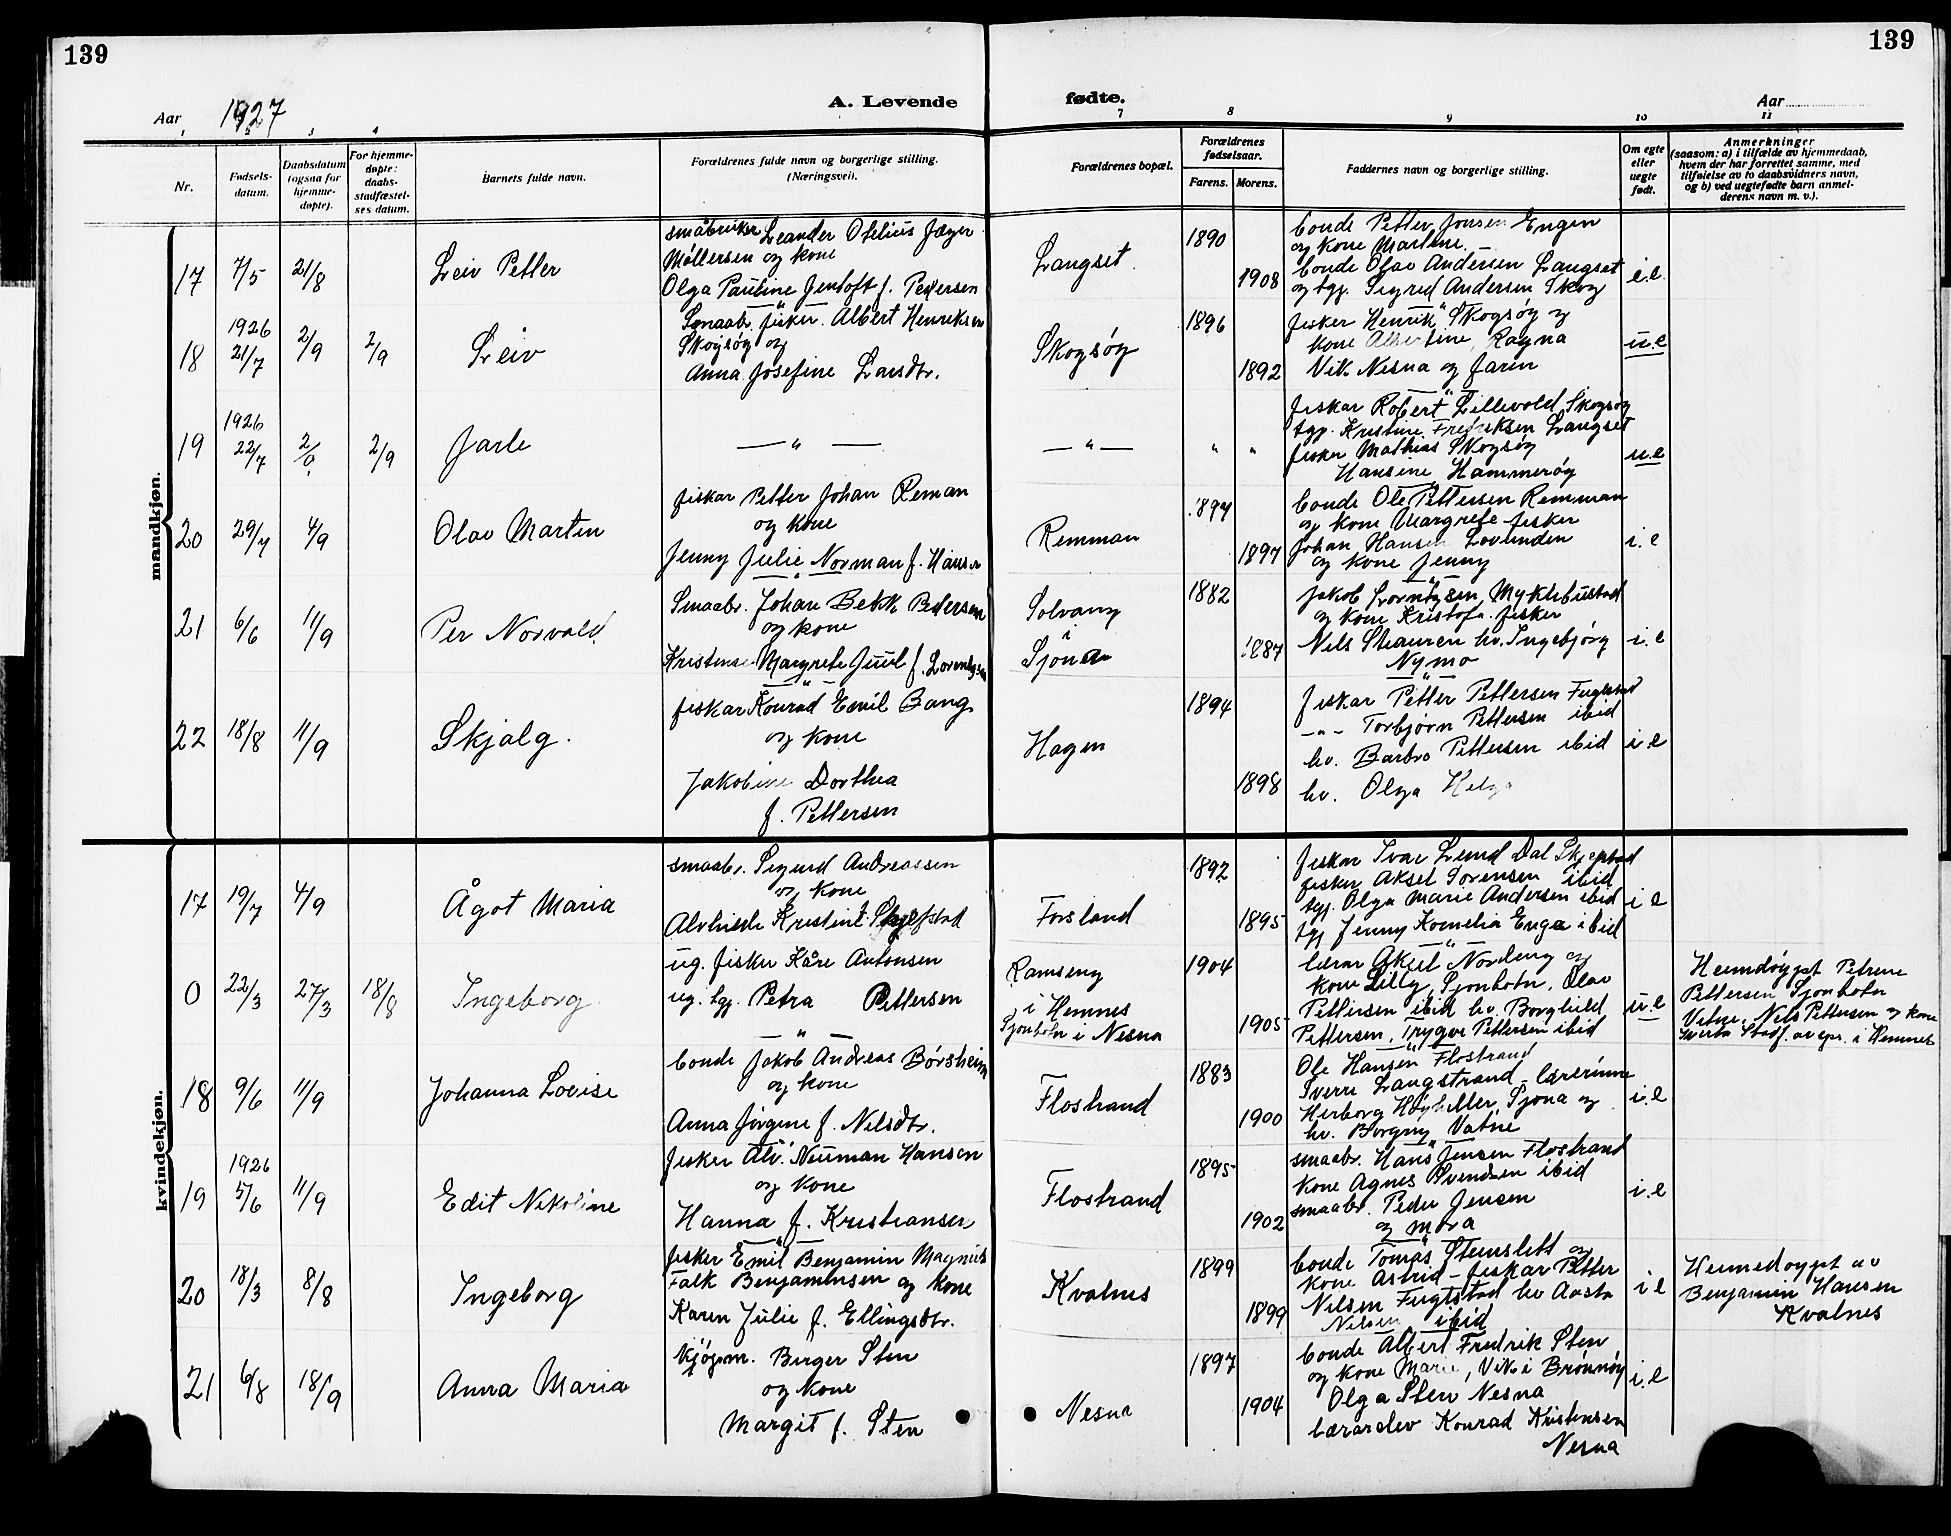 139
139
Aar 1927
A. Levende
fødte.
Aar
1 2 3 4 7 8 9 10 11
Nr.
Fødsels-
datum.
Daabsdatum
(ogsaa for
hjemme-
døpte).
For hjemme-
døpte:
daabs-
stadfæstel-
ses datum.
Barnets fulde navn.
Forældrenes fulde navn og borgerlige stilling.
(Næringsvei).
Forældrenes bopæl.
Forældrenes
fødselsaar.
Farens. Morens.
Faddernes navn og borgerlige stilling.
Om egte
eller
uegte
født.
Anmerkninger
(saasom: a) i tilfælde av hjemmedaab,
hvem der har forrettet samme, med
tilføielse av to daabsvidners navn,
og b) ved uegtefødte barn anmel-
derens navn m. v.).
mandkjøn.
17 7/5 21/8 Leiv Petter
småbruker Leander Otelius Jæger
Møllersen og kone
Olga Pauline Jentoft f. Pedersen
Langset
1890
1908
bonde Petter Jonsen Engen
og kone Martine.
bonde Olav Andersen Langset
og tgp. Sigred Andersen Skog
i.e.
18 1926 21/7 2/9 2/9 Leiv
Smaabr. fisker. Albert Henriksen
Skogsøy og
Anna Josefine Larsdtr.
Skogsøy
1896
1892
fisker Henrik Skogsøy og
kone Albertine, Ragna
Vik Nesna og faren
u.e
19 1926 22/7 2/9 2/9 Jarle
— " —
— " —
" "
fiskar Robert Lillevold Skogsøy
tgp. Kristine Fredriksen Langset
fisker Mathias Skogsøy
Hansine Hammerøy
u.e
20 29/7 4/9 Olav Martin
fiskar Petter Johan Reman
og kone
Jenny Julie Norman f. Hansen
Remman
1897
1897
bonde Ole Pettersen Remman
og kone Margrete fisker
Johan Hansen Lovunden
og kone Jenny
i.e
21 6/6 11/9 Per Norvald
Smaabr. Johan Bekk Pedersen
og kone
Kristense Margrete Juul f. Lorentzen
Solvang
i
Sjona
1882
1887
Jakob Lorntzsen Myklebustad
og kone Kristofa. fisker
Nils Stauren hv. Ingebjørg
Nymo
i.e
22 18/8 11/9 Skjalg.
fiskar Konrad Emil Bang
og kone
Jakobine Dorthea
f. Pettersen
Hagen
1894
1898
fiskar Petter Pettersen Fuglstad
— " — Torbjørn Pettersen ibid
hv. Barbro Pettersen ibid
hv. Olga
i.e
kvindekjøn.
17 19/7 4/9 Ågot Maria
smaabr. Sigurd Andreassen
og kone
Alvhilde Kristine
Forsland
1892
1895
fiskar Ivar Lund Dal
fisker Aksel Sørensen ibid
tgp. Olga Marie Andersen ibid
tgp Jenny Kornelia Enge ibid
i e
0 22/3 27/3 18/8 Ingeborg
ug. fisker Kåre Antonsen
ug. tgp. Petra Pettersen
Ramseng
i Hemnes
Sjonbotn i Nesna
1904
1905
lærar Aksel Nordeng og
kone Lilly, Sjonbotn, Olav
Pettersen ibid hv. Borghild
Pettersen, Trygve Pettersen ibid
u.e
Heimdøypt Petrine
Pettersen Sjonbotn
Vitne. Nils Pettersen og kone
Stadf. av spr. i Hemnes
18 9/6 11/9 Johanna Lovise
bonde Jakob Andreas Børsheim
og kone
Anna Jørgine f. Nilsdtr.
Flostrand
1883
1900
Ole Hansen Flostrand
Sverre Langstrand - lærerinne
Herborg Sjona og
hv. Borgny Vatne
i.e
19 1926 5/6 11/9 Edit Nikoline
fisker Alv. Neuman Hansen
og kone
Hanna f. Kristiansen
Flostrand
1895
1902
smaabr. Hans Jensen Flostrand
kone Agnes Svendsen ibid
smaabr. Peder Jensen
og mora
i.e
20 18/3 8/8 Ingeborg
fisker Emil Benjamin Magnus
Falk Benjaminsen og kone
Karen Julie f. Ellingsdtr.
Kvalnes
1899
1899
bonde Tomas Stenslett og
kone Astrid - fiskar Petter
Nilsen Fuglstad hv Aasta
Nilsen ibid
i e
Heimedøypt av
Benjamin Hansen
Kvalnes
21 6/8 18/9 Anna Maria
kjøpm. Birger Sten
og kone
Margit f. Sten
Nesna
1897
1904
bonde Albert Fredrik Sten
og kone Marie, Vik i Brønnøy
Olga Sten Nesna
lærarelev Konrad Kristensen
Nesna
i.e